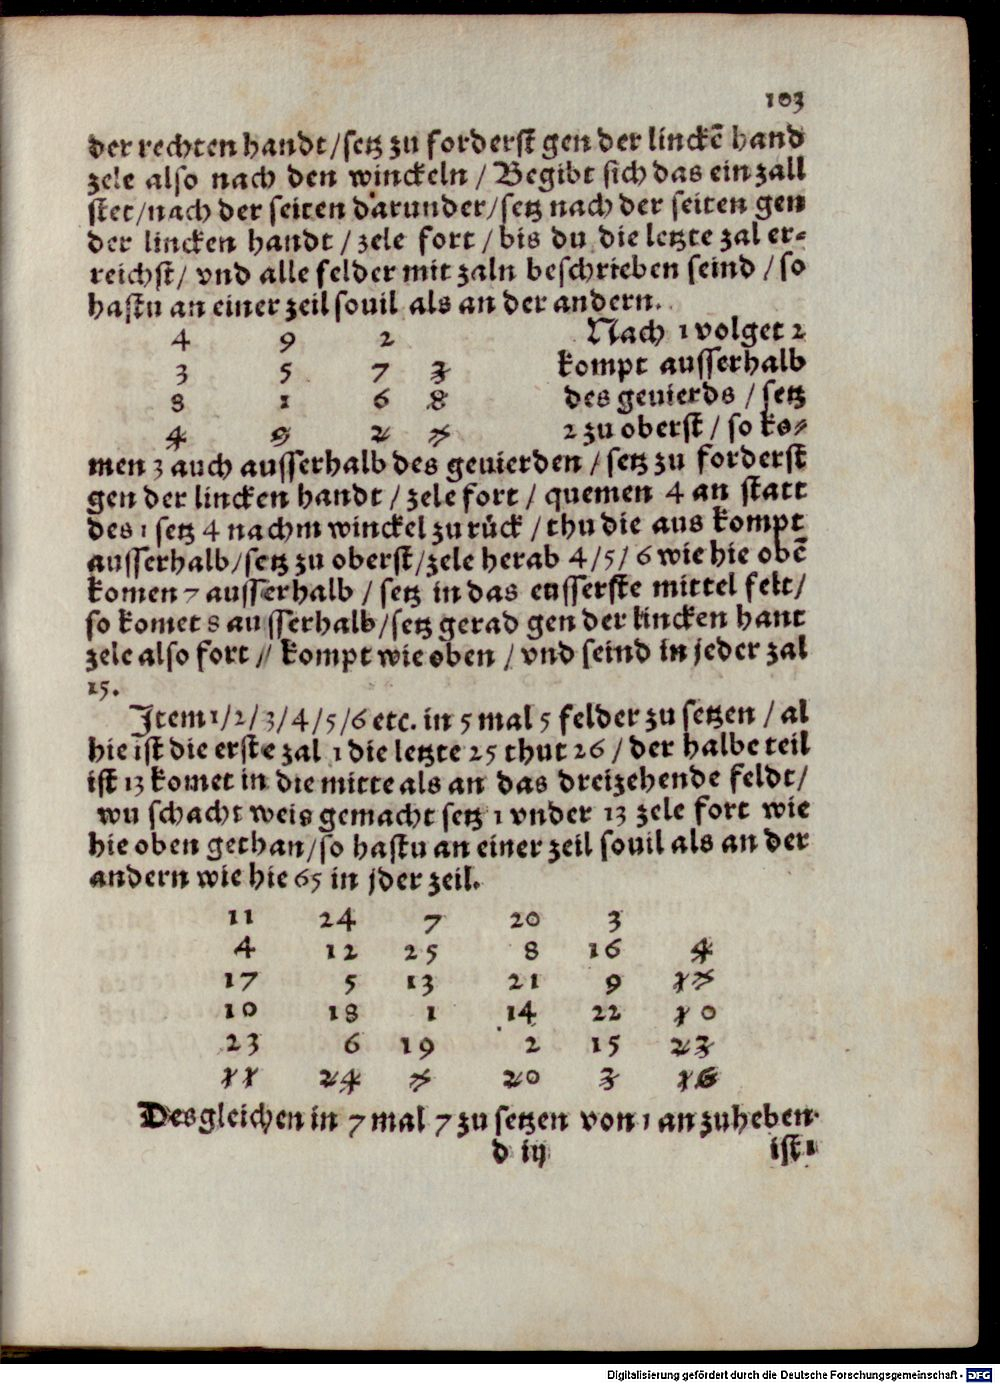 103
der rechten handt/setz zu forderst gen der linckē hand
zele also nach den winckeln / Begibt sich das ein zall
stet/nach der seiten darunder/setz nach der seiten gen
der lincken handt / zele fort / bis du die letzte zal er=
reichst/ vnd alle felder mit zaln beschrieben seind / so
hastu an einer zeil souil als an der andern.
4 9 2 Nach 1 volget 2
3 5 7 3 kompt ausserhalb
8 1 6 8 des geuierds / setz
4 9 2 7 2 zu oberst / so ko=
men 3 auch ausserhalb des geuierden / setz zu forderst
gen der lincken handt / zele fort / quemen 4 an statt
des 1 setz 4 nachm winckel zu rück / thu die aus kompt
ausserhalb/setz zu oberst/zele herab 4/5/6 wie hie obē
komen 7 ausserhalb / setz in das eusserste mittel felt/
so komet 8 ausserhalb/setz gerad gen der lincken hant
zele also fort // kompt wie oben / vnd seind in jeder zal
15.
Item 1/2/3/4/5/6 etc. in 5 mal 5 felder zu setzen / al
hie ist die erste zal 1 die letzte 25 thut 26 / der halbe teil
ist 13 komet in die mitte als an das dreizehende feldt/
wu schacht weis gemacht setz 1 vnder 13 zele fort wie
hie oben gethan/so hastu an einer zeil souil als an der
andern wie hie 65 in jder zeil.
11 24 7 20 3
4 12 25 8 16 4
17 5 13 21 9 17
10 18 1 14 22 10
23 6 19 2 15 23
11 24 7 20 3 16
Desgleichen in 7 mal 7 zu setzen von 1 anzuheben.
d iij ist 1
Digitalisierung gefördert durch die Deutsche Forschungsgemeinschaft - DFG